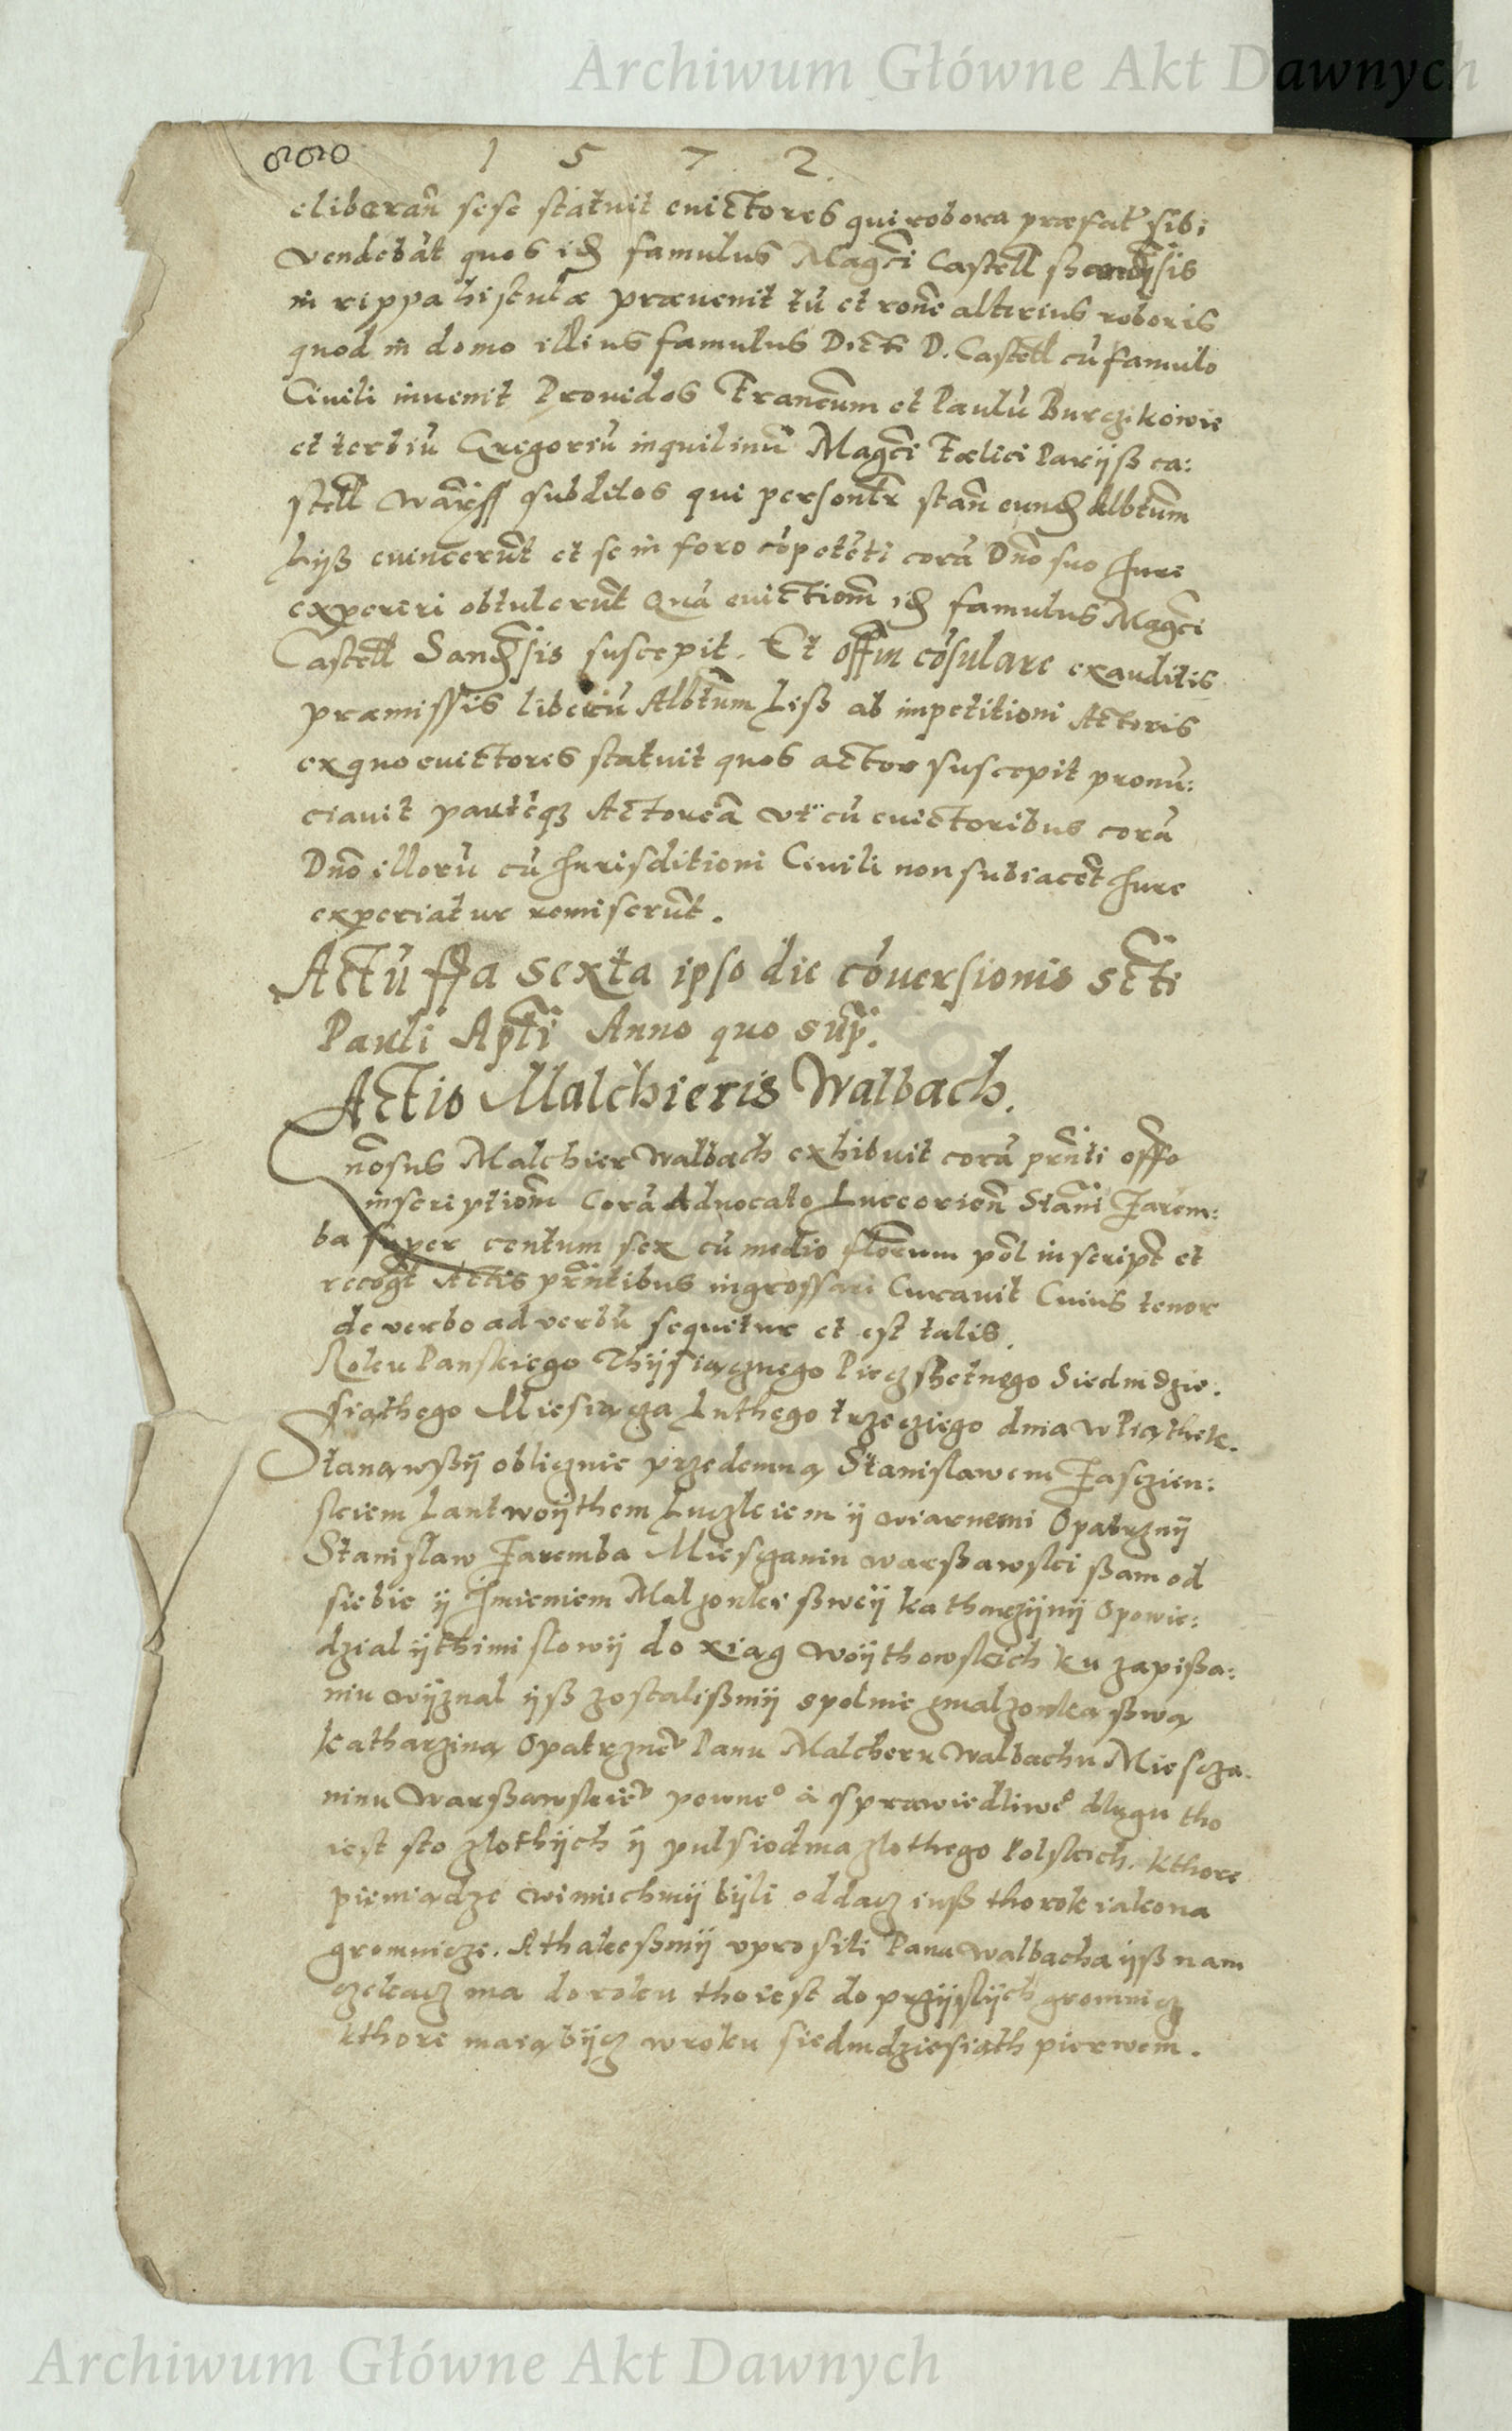 Archiwum Główne Akt Dawnych
1 5 7 2.
eliberan̄ sese statuit euictores qui robora præfat sibi
vendebāt quos id famulus Magci Castell
in rippa histulæ præuenit tū et rone alterius roboris
quod in domo illius famulus Dicti D. Castell cū famulo
Ciuili inuenit Prouidos Francum et Paulū Burzikowie
et tertiū Gregoriū inquilinū Magci Fœlici Parijß ca:
stell Warss subditos qui personlr stan eund Albtum
Lijß euincerūt et se in foro cōpetēti corā Dno suo Jure
expereri obtulerūt Quā euictiom id famulus Magci
Castell Sandsis suscepit. Et offm cōsulare exauditis
præmissis liberū Albtum Liß ab impetitioni Actoris
ex quo euictores statuit quos actor suscepit pronū:
ciauit partēq3 Actoreā vt cū euictoribus corā
Dno illorū cū Jurisditioni Ciuili non subiacēt Jure
experiatur remiserūt.
Actū ffa sexta ipso die cōuersionis scti
Pauli Apti Anno quo sup.
Actio Malchieris Walbach.
nosus Malchier Walbach exhibuit corā prnti offo
inscriptiom Corā Aduocato Luccorien Stani Jarem:
ba super centum sex cū medio florum pol inscript et
recogt Actis prntibus ingrossari Curauit Cuius tenor
de verbo ad verbū sequetur et est talis.
Roku Panskiego Thijsiącznego Pieczsethnego Siedmdzie:
siąthego Miesiącza Luthego trzecziego dnia w Piąthek.
Stanąwßij oblicznie przedemną Stanislawem Jasczien:
skiem Lantwoijthem Luczkiem ij wiarnemi Opatrznij
Stanislaw Jaremba Miesczanin Warßawski ßam od
siebie ij Jmieniem Malzonki ßweij Katharzijnij Opowie:
dzial ijthimi slowij do xiąg Woijthowskich ku zapißa:
niu wijznal ijß zostalißmij spolnie zmalzonka ßwą
Katharziną Opatrzne Panu Malcheru Walbachu Miescza:
ninu Warßawskie pewne° a sprawiedliwe° dlugu tho
iest sto zlothijch ij pulsiodma zlothego Polskich. kthore
pieniądze winnichmij bijli oddacz iuß tho rok iako na
gromnicze. A thakeßmij vprosili Pana Walbacha ijß nam
czekacz ma do roku tho iest do przijslijch gromnicz
kthore maią bijcz w roku siedmdziesiąth pierwem.
Archiwum Główne Akt Dawnych